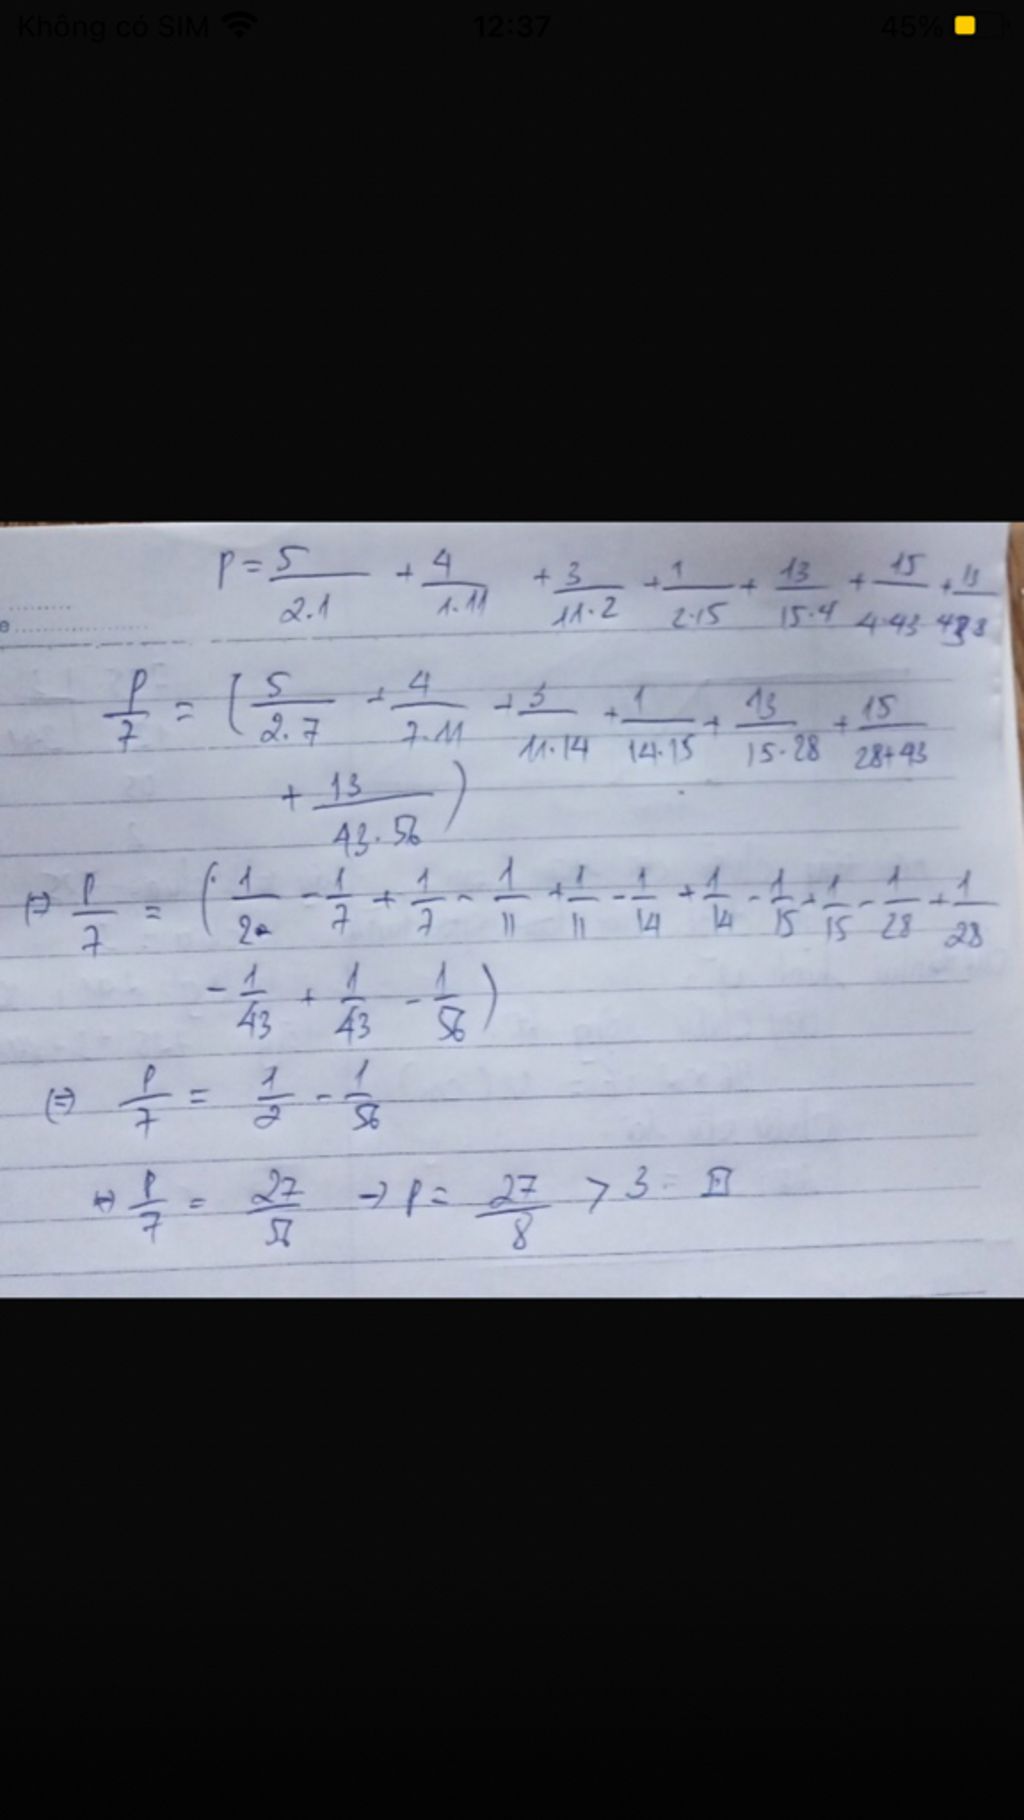 Không có SIM 12:37 45%
P = 5/2.1 + 4/1.11 + 3/11.2 + 1/2.15 + 13/15.4 + 15/4.43 +
P/7 = ( 5/2.7 + 4/7.11 + 3/11.14 + 1/14.15 + 13/15.28 + 15/28+43
+ 13/43.56 )
(=) P/7 = ( 1/2 - 1/7 + 1/7 - 1/11 + 1/11 - 1/14 + 1/14 - 1/15 + 1/15 - 1/28 + 1/28
- 1/43 + 1/43 - 1/56 )
(=) P/7 = 1/2 - 1/56
(=) P/7 = 27/56 → P = 27/8 > 3